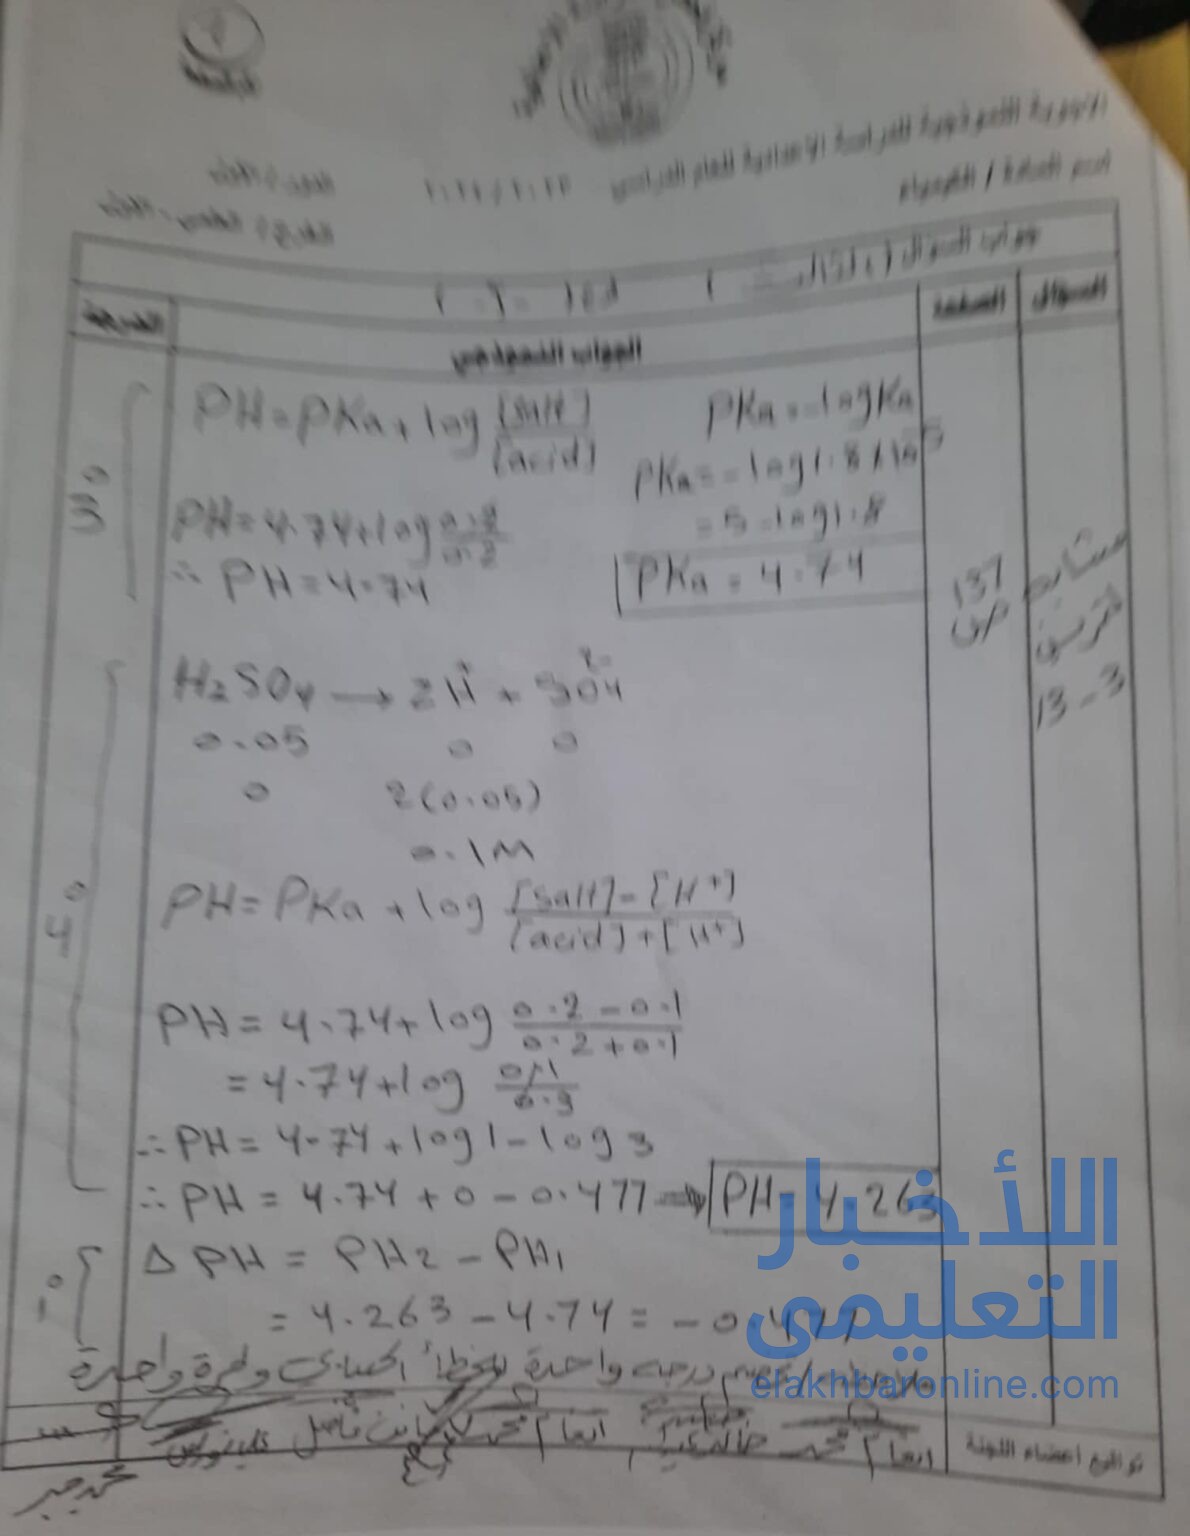 الأجوبة النموذجية للدراسة الإعدادية للعام الدراسي
اسم المادة / الكيمياء
جواب السؤال (
السؤال
الصفحة
الجواب النموذجي
الدرجة
PH = PKa + log [salt]/[acid]
PKa = -logKa
PKa = -log1.8×10-5
= 5 - log1.8
PKa = 4.74
PH = 4.74 + log 0.2/0.2
∴ PH = 4.74
137
ص
تمرين
13-3
H2SO4 → 2H+ + SO4 2-
0.05 0 0
0 2(0.05)
0.1M
PH = PKa + log [salt]-[H+]/[acid]+[H+]
PH = 4.74 + log 0.2-0.1/0.2+0.1
= 4.74 + log 0.1/0.3
∴ PH = 4.74 + log1 - log3
∴ PH = 4.74 + 0 - 0.477 ⇒ PH = 4.263
Δ PH = PH2 - PH1
= 4.263 - 4.74 = -0.477
درجة واحدة للخطأ الحسابي ولمرة واحدة
تواقيع أعضاء اللجنة
الأخبار
التعليمي
elakhbaronline.com